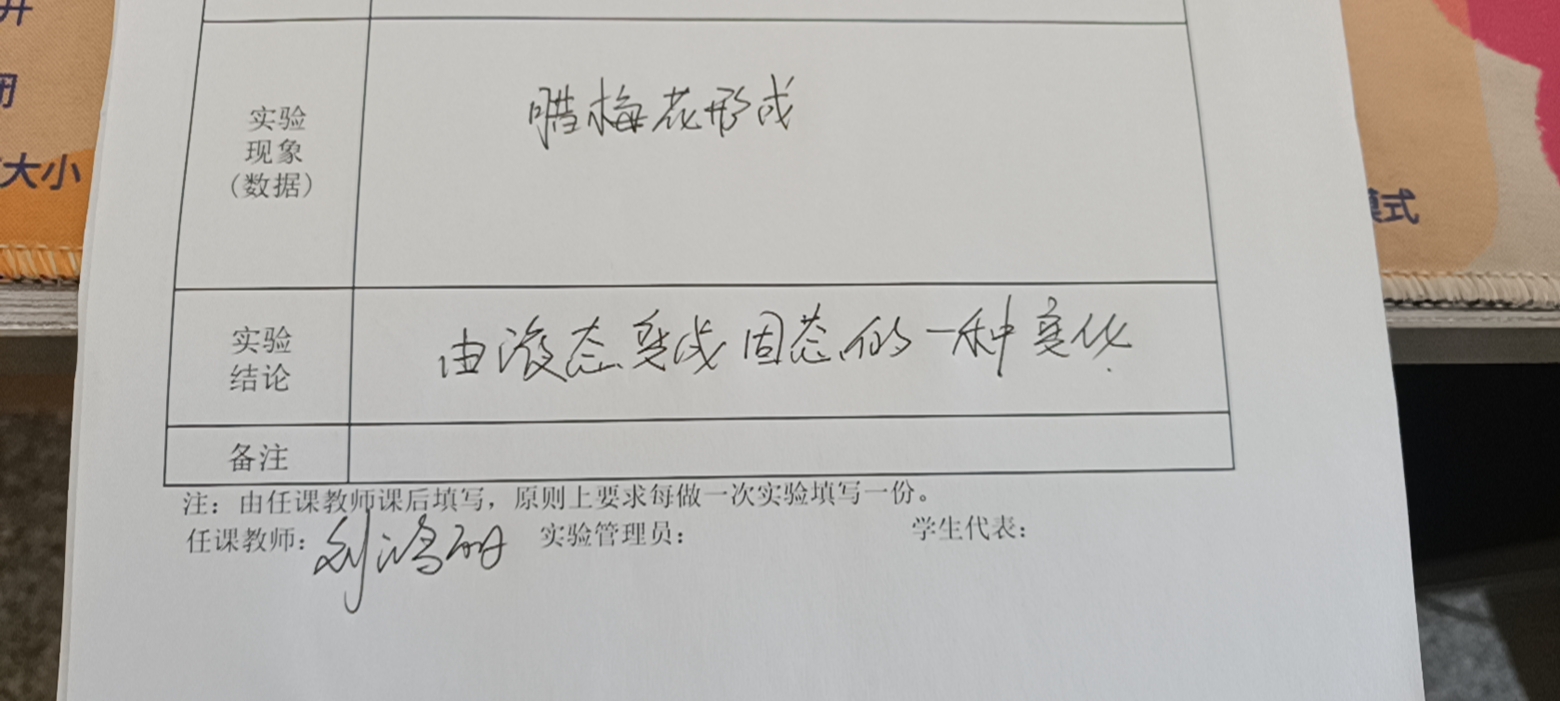 大小
模式
实验
现象
(数据)
腊梅花形成
实验
结论
由液态变成固态的一种变化
备注
注：由任课教师课后填写，原则上要求每做一次实验填写一份。
任课教师：刘鸿 实验管理员： 学生代表：